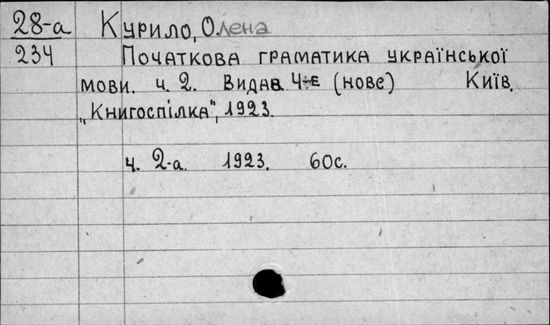 28-а Курило, Олена
234 Початкова граматика української
мови. ч. 2. Видав. 4-е (нове) Київ,
„Книгоспілка", 1923.
ч. 2-а. 1923. 60с.